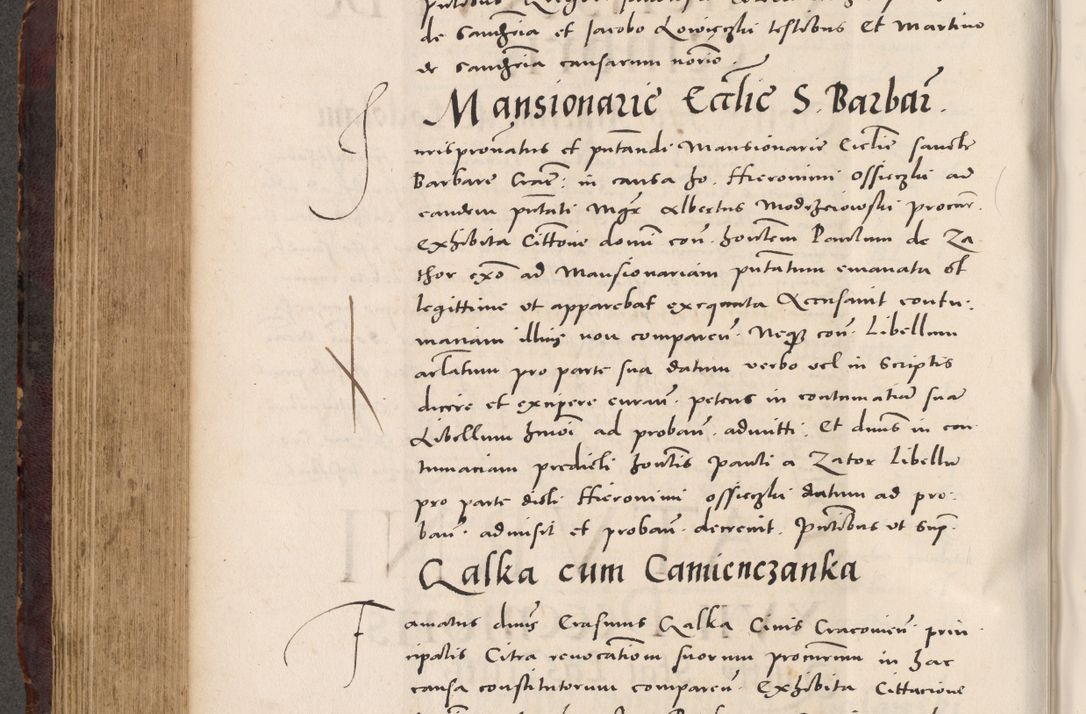 de Sandzeia et Jacobo Lowiczki testibus Et Martino
de Sandzeia causarum norio.
Mansionarie Ecclie S. Barbar.
Jurispronatus et putandi Mansionarie Ecclie sancte
Barbare Crac: in causa ho. Hieronimi Ossieczki ad
eandem putati Mgr Albertus Modrzeiowski procur.
Exhibita Cittone domi con. hontem Paulum de Za
thor exo ad Mansionariam putatum emanata et
legittime ut apparebat exequuta Accusavit contu-
maciam illius non comparen. Neque con. Libellum
articulatum pro parte sua datum verbo vel in scriptis
dicere et excipere curan. petens in contumatia sua
Libellum hmoi ad proban. admitti. Et dnus in con
tumaciam predicti hontis Pauli a Zator Libellu
pro parte dicti Hieronimi Ossieczki datum ad pro-
ban. admisit et proban. decrevit. Pntibus ut sup.
Qalka cum Camienczanka
Famatus dnus Erasmus Qalka Civis Cracovien. prin
cipalis Citra revocationem suorum procurum in hac
causa constitutorum comparen. Exhibita Cittacione